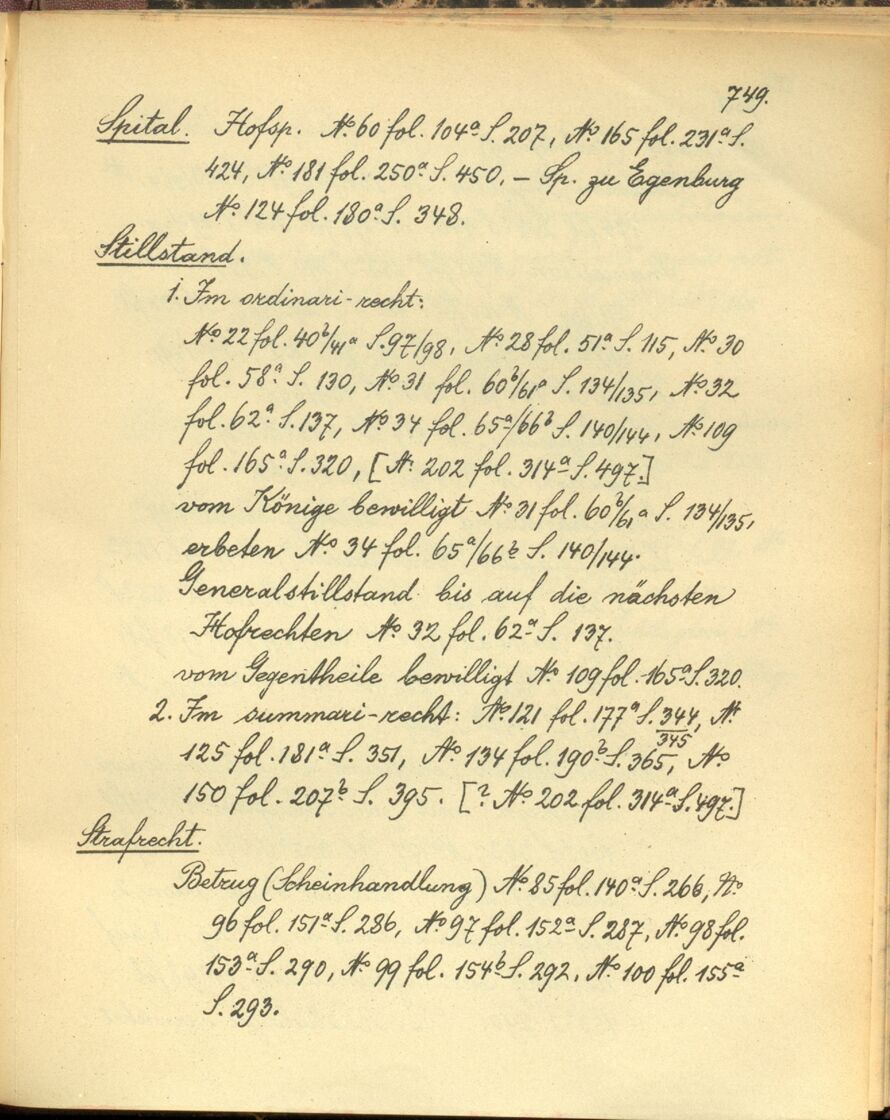 749.
Spital. Hofsp. No. 60 fol. 104a S. 207, No. 165 fol. 231a S.
424, No. 181 fol. 250a S. 450. – Sp. zu Egenburg
No. 124 fol. 180a S. 348.
Stillstand.
1. Im ordinari-recht:
No. 22 fol. 40b/41a S. 97/98, No. 28 fol. 51a S. 115, No. 30
fol. 58a S. 130, No. 31 fol. 60b/61a S. 134/135, No. 32
fol. 62a S. 137, No. 34 fol. 65a/66b S. 140/144, No. 109
fol. 165a S. 320, [No. 202 fol. 314a S. 497.]
vom Könige bewilligt No. 31 fol. 60b/61a S. 134/135,
erbeten No. 34 fol. 65a/66b S. 140/144.
Generalstillstand bis auf die nächsten
Hofrechten No. 32 fol. 62a S. 137.
vom Gegentheile bewilligt No. 109 fol. 165a S. 320.
2. Im summari-recht: No. 121 fol. 177a S. 344/345, No.
125 fol. 181a S. 351, No. 134 fol. 190b S. 365, No.
150 fol. 207b S. 395. [? No. 202 fol. 314a S. 497.]
Strafrecht.
Betrug (Scheinhandlung) No. 85 fol. 140a S. 266, No.
96 fol. 151a S. 286, No. 97 fol. 152a S. 287, No. 98 fol.
153a S. 290, No. 99 fol. 154b S. 292, No. 100 fol. 155a
S. 293.